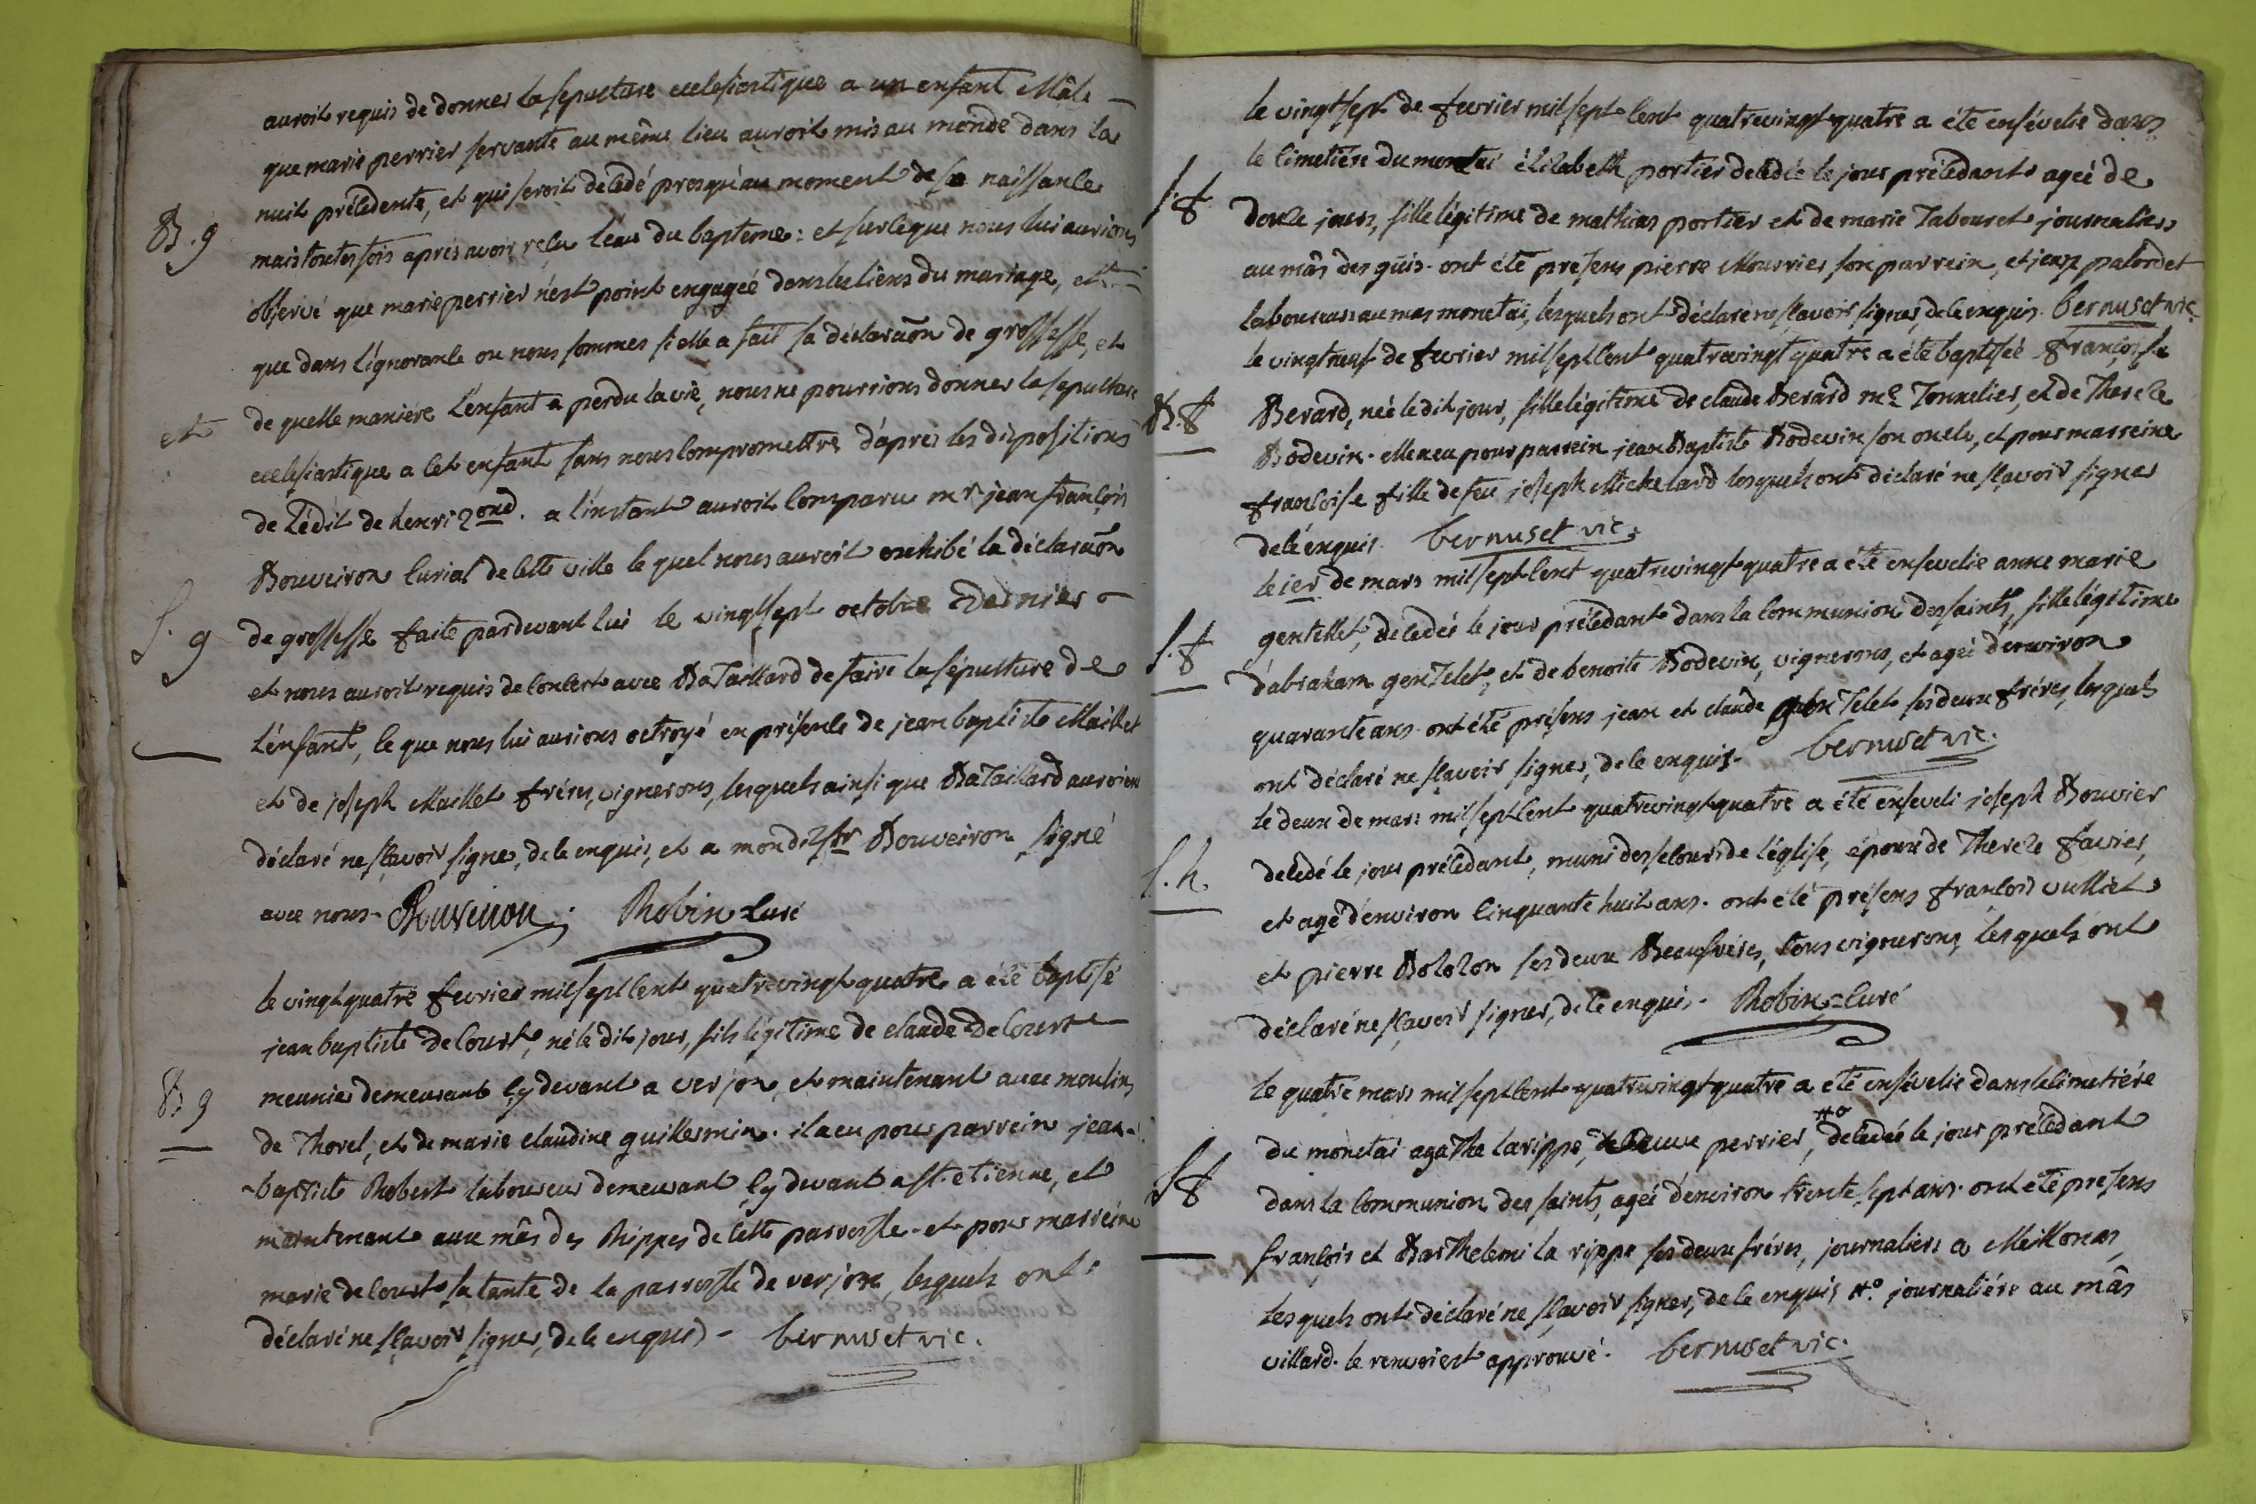 auroit requis de donner la sepulture ecclesiastique a un enfant Mâle
que marie perrier servante au même lieu auroit mis au monde dans la
nuit précedente, et qui seroit decedé presqu'au moment de sa naissance
B. g
mais toutesfois apres avoir reçu l'eau du baptême : et sur ce que nous lui aurions
observé que marie perrier n'est point engagée dans les liens du mariage, et
que dans l'ignorance ou nous sommes si elle a fait sa déclaraôn de grossesse, et
et
de quelle maniere l'enfant a perdu la vie, nous ne pourrions donner la sepulture
ecclesiastique a cet enfant sans nous compromettre d'apres les dispositions
de l'édit de henri 2ond. a l'instant auroit comparu mr jean françois
Bouveiron curial de cette ville le quel nous auroit exhibé la déclaraôn
S. g
de grossesse faite pardevant lui le vingt sept octobre dernier
et nous auroit requis de concert avec Bataillard de faire la sépulture de
l'enfant, ce que nous lui aurions octroyé en présence de jean baptiste Maillet
et de joseph Maillet fréres, vignerons, lesquels ainsi que Bataillard auroient
déclaré ne sçavoir signer, de ce enquis, et a mondit sr Bouveiron signé
avec nous. Bouveiron Robin Curé
le vingt quatre fevrier mil sept cent quatrevingt quatre a été baptisé
jean baptiste decourt, né le dit jour, fils légitime de claude decourt
B g
meunier demeurant cy devant a verjon, et maintenant aux moulins
de Thorel, et de marie claudine guillermin. il a eu pour parrein jean
baptiste Robert laboureur demeurant cy devant a st. etienne, et
maintenant aux mâs des Rippes de cette parroisse. et pour marreine
marie decourt sa tante de la parroisse de verjon, lesquels ont
déclaré ne sçavoir signer, de ce enquis. bernuset vic.
le vingt sept de fevrier mil sept cent quatrevingt quatre a été ensévelie dans
le cimetiére du montai élizabeth portier decedée le jour précedant agée de
S. f
douze jours, fille légitime de mathias portier et de marie Tabouret journaliers
au mâs des guis. ont été presens pierre Mourrier son parrein, et jean palordet
laboureur au mas monetai, lesquels ont déclaré ne sçavoir signer, de ce enquis. bernuset vic.
le vingt neuf de fevrier mil sept cent quatrevingt quatre a été baptisée françoise
B. f
Berard, née le dit jour, fille légitime de claude Berard me. Tonnelier, et de Therese
Bodevin. elle a eu pour parrein jean Baptiste Bodevin son oncle, et pour marreine
françoise fille de feu joseph Michelard lesquels ont déclaré ne sçavoir signer
de ce enquis. bernuset vic.
le ier de mars mil sept cent quatrevingt quatre a été ensevelie anne marie
S. f
gentelet, decedée le jour précedant dans la communion des saints, fille légitime
d'abraham genTelet, et de benoite Bodevin, vignerons, et agée d'environ
quarante ans. ont été présens jean et claude genTelet ses deux fréres, lesquels
ont déclaré ne sçavoir signer, de ce enquis. bernuset vic.
le deux de mars mil sept cent quatrevingt quatre a été enseveli joseph Bouvier
S. h
decedé le jour précedant, muni des secours de l'église, époux de Therese favier,
et agé d'environ cinquante huit ans. ont été présens françois vulliet
et pierre Bolozon ses deux Beaufreres, tous vignerons, lesquels ont
déclaré ne sçavoir signer, de ce enquis. Robin Curé
le quatre mars mil sept cent quatrevingt quatre a été ensévelie dans le cimetiére
du monetai agaThe larippe, veuve perrier, #° decedée le jour précedant
S f
dans la communion des saints, agée d'environ trente sept ans. ont été présens
françois et BarThelemi la rippe ses deux fréres, journaliers a Meillonas,
lesquels ont déclaré ne sçavoir signer, de ce enquis #° journaliére au mâs
villard. le renvoi est approuvé. bernuset vic.